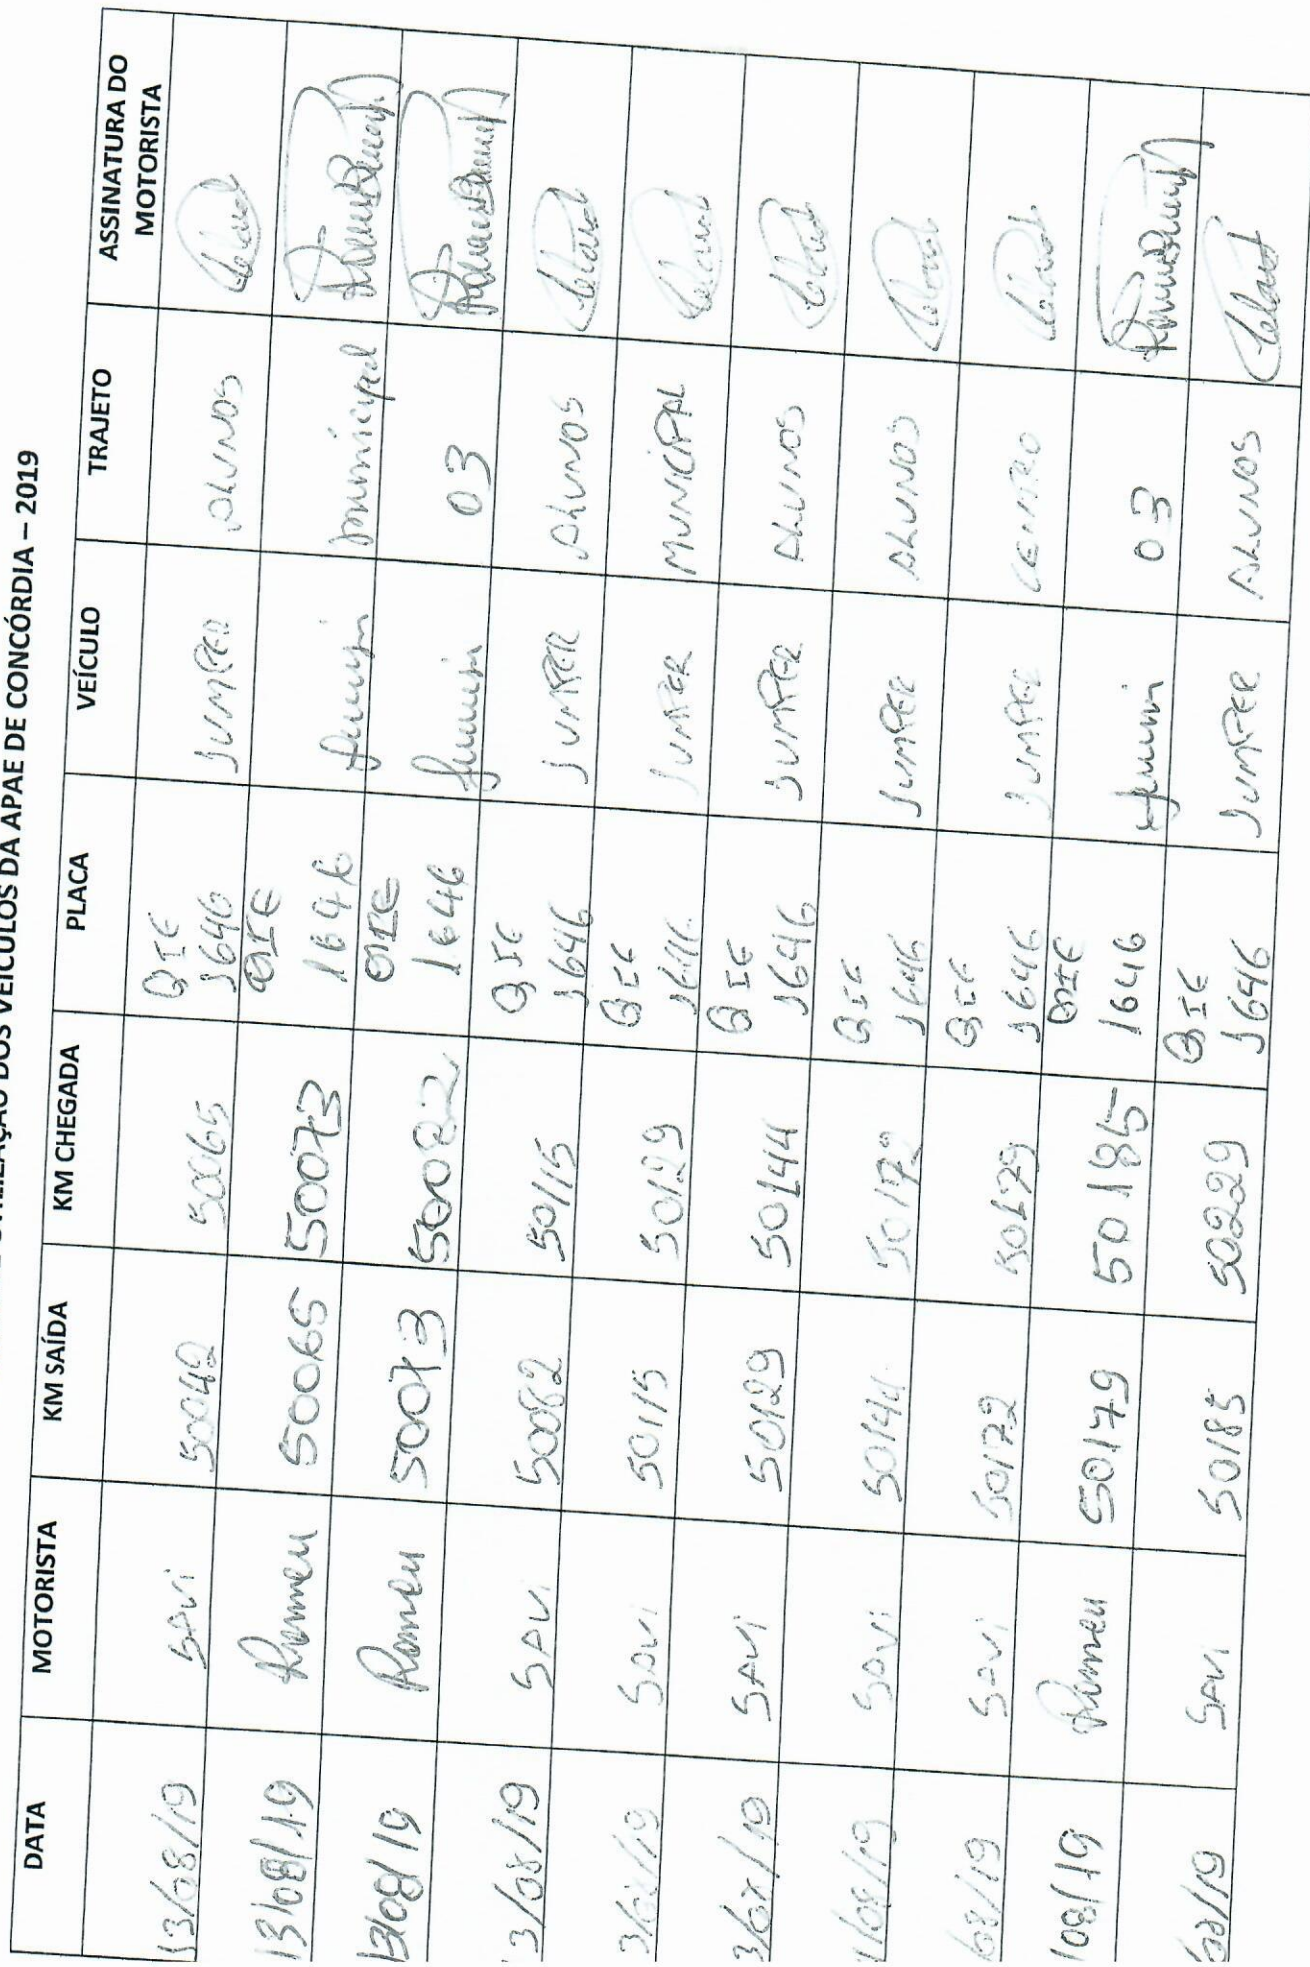 UTILIZAÇÃO DOS VEÍCULOS DA APAE DE CONCÓRDIA – 2019
DATA MOTORISTA KM SAÍDA KM CHEGADA PLACA VEÍCULO TRAJETO ASSINATURA DO MOTORISTA
13/08/19 SAVI 50042 50065 QIE 1646 JUMPER ALUNOS
13/08/19 Romeu 50065 50073 QIE 1646 Jumpi municipal
13/08/19 Romeu 50073 50082 QIE 1646 Jumpi 03
13/08/19 SAVI 50082 50115 QIE 1646 JUMPER ALUNOS
3/08/19 SAVI 50115 50129 QIE 1646 JUMPER MUNICIPAL
3/08/19 SAVI 50129 50144 QIE 1646 JUMPER ALUNOS
/08/19 SAVI 50144 50172 QIE 1646 JUMPER ALUNOS
/08/19 SAVI 50172 50179 QIE 1646 JUMPER CENTRO
/08/19 Romeu 50179 50185 QIE 1646 Jumpi 03
/08/19 SAVI 50185 50229 QIE 1646 JUMPER ALUNOS